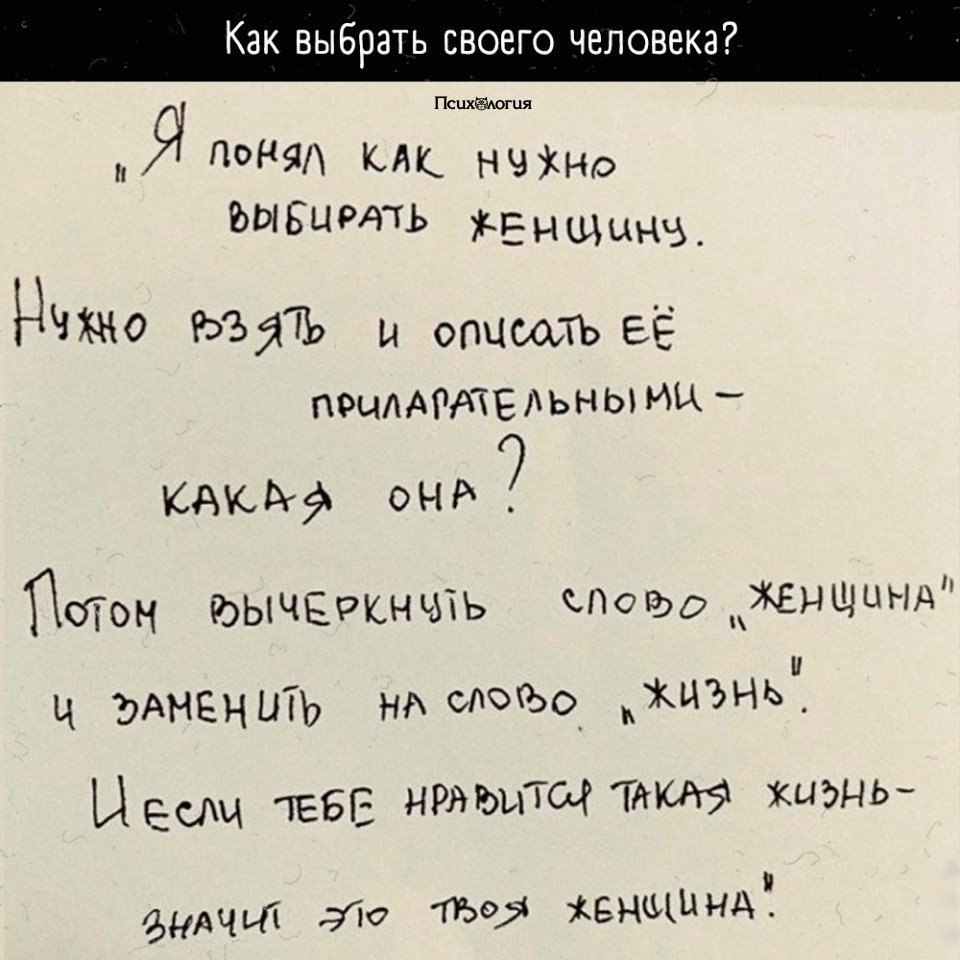 Как выбрать своего человека?
Психология
„Я понял как нужно
выбирать женщину.
Нужно взять и описать её
прилагательными –
какая она?
Потом вычеркнуть слово „женщина"
и заменить на слово „жизнь".
И если тебе нравится такая жизнь –
значит это твоя женщина".